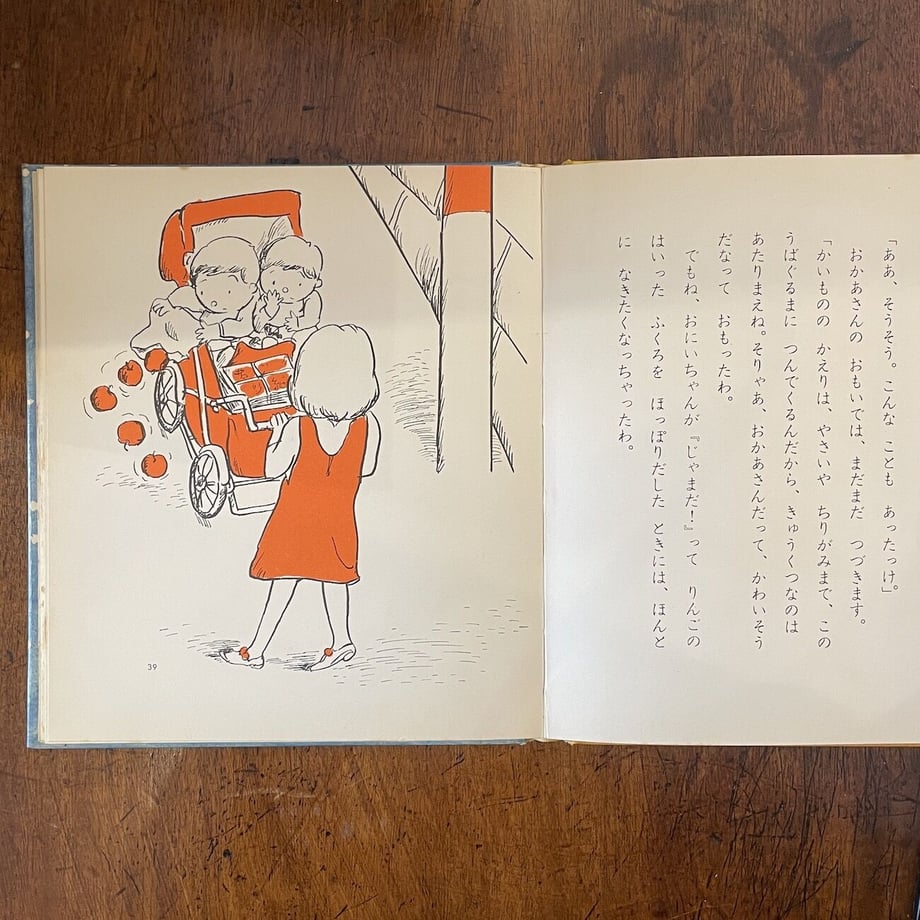 「ああ、そうそう。こんな　ことも　あったっけ」
　おかあさんの　おもいでは、まだまだ　つづきます。
「かいものの　かえりは、やさいや　ちりがみまで、この
うばぐるまに　つんでくるんだから、きゅうくつなのは
あたりまえね。そりゃあ、おかあさんだって、かわいそう
だなって　おもったわ。
　でもね、おにいちゃんが『じゃまだ！』って　りんごの
はいった　ふくろを　ほっぽりだした　ときには、ほんと
に　なきたくなっちゃったわ。
39